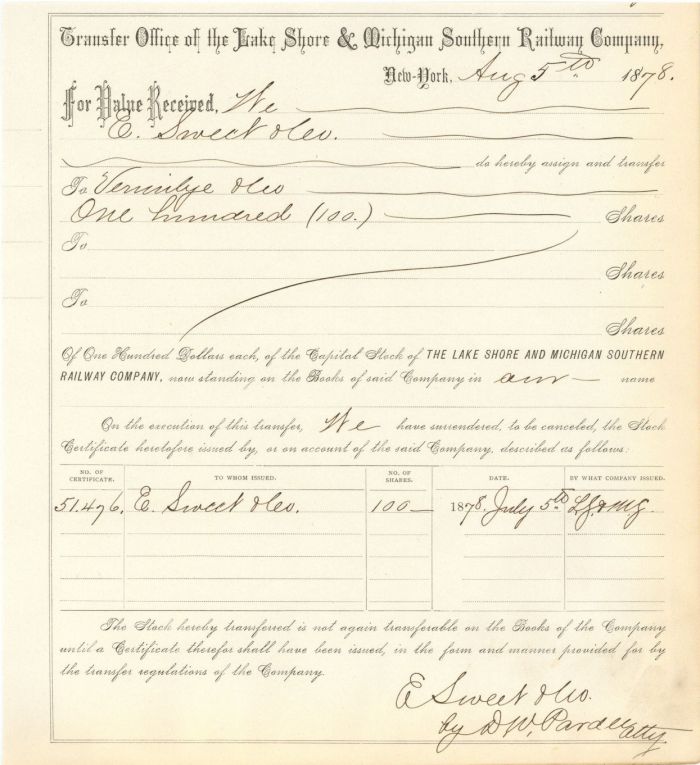 Transfer Office of the Lake Shore & Michigan Southern Railway Company,
New-York, Aug 5th 1878.
For Value Received, We
E. Sweet & Co.
do hereby assign and transfer
To Vermilye & Co
One hundred (100.) Shares
To
Shares
To
Shares
Of One Hundred Dollars each, of the Capital Stock of THE LAKE SHORE AND MICHIGAN SOUTHERN
RAILWAY COMPANY, now standing on the Books of said Company in our name
On the execution of this transfer, We have surrendered, to be canceled, the Stock
Certificate heretofore issued by, or on account of the said Company, described as follows:
NO. OF CERTIFICATE. TO WHOM ISSUED. NO. OF SHARES. DATE. BY WHAT COMPANY ISSUED.
51.476. E. Sweet & Co. 100 1878. July 5th L.S. & M.S.
The Stock hereby transferred is not again transferable on the Books of the Company
until a Certificate therefor shall have been issued, in the form and manner provided for by
the transfer regulations of the Company.
E Sweet & Co.
by D. W. Pardee atty